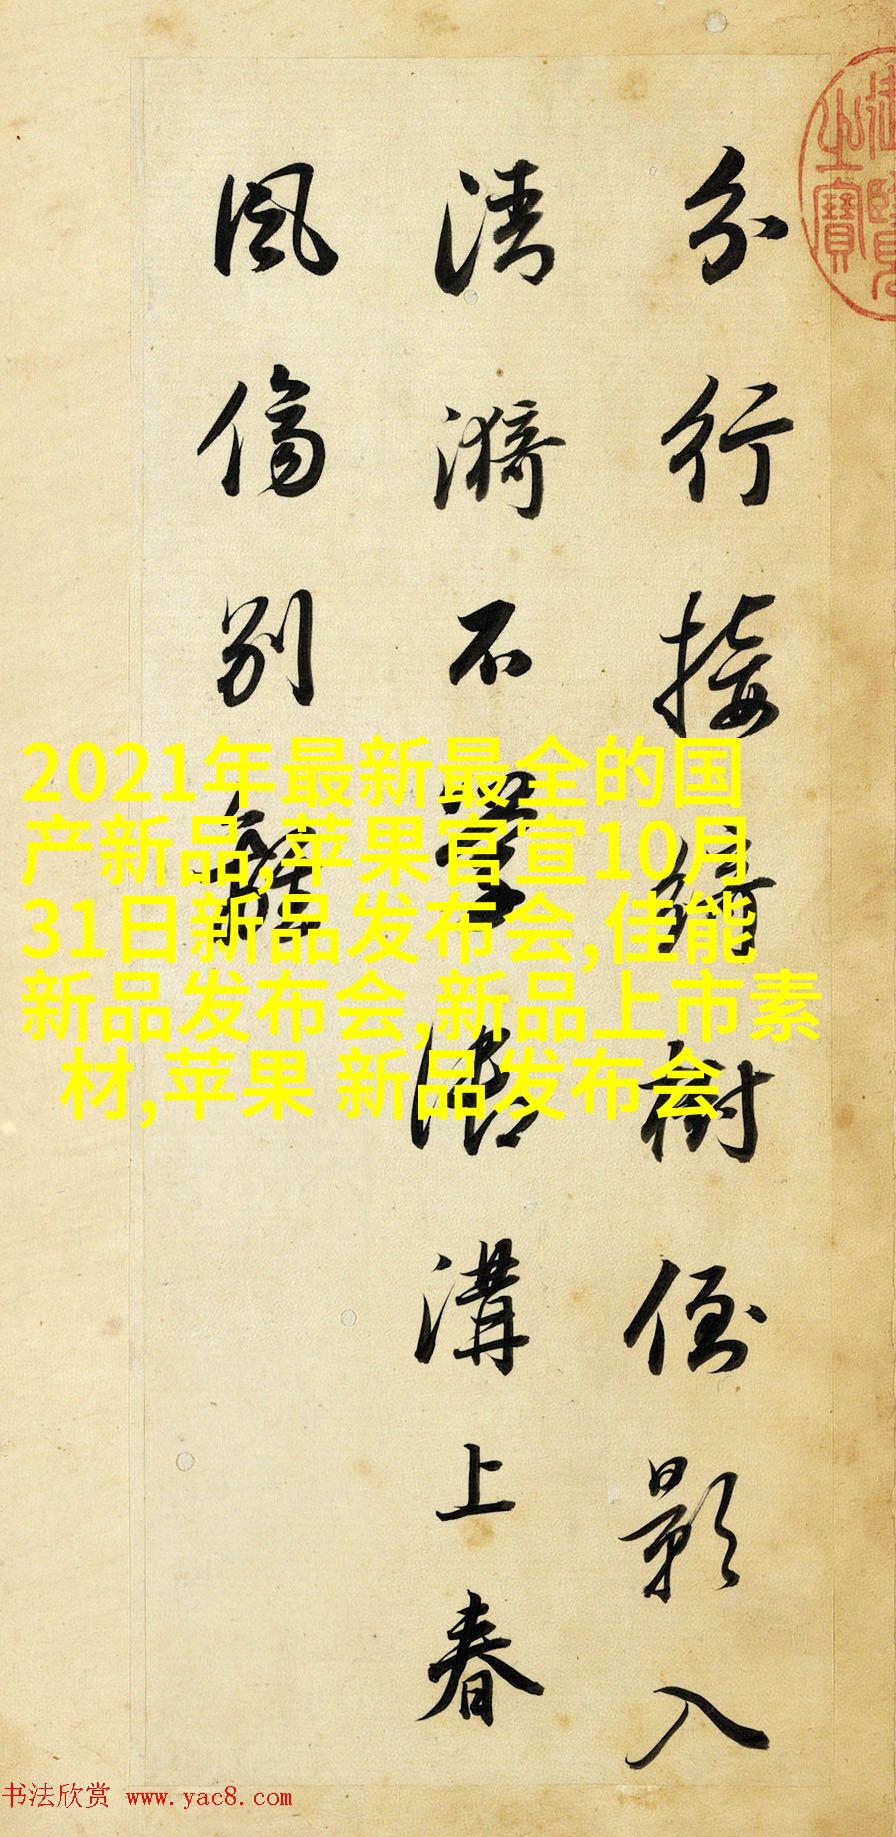 分行接綺樹倒影入
清漪不學御溝上春
風傷別離
御覽之寶
2021年最新最全的国
产新品,苹果官宣10月
31日新品发布会,佳能
新品发布会,新品上市素
材,苹果 新品发布会
书法欣赏 www.yac8.com